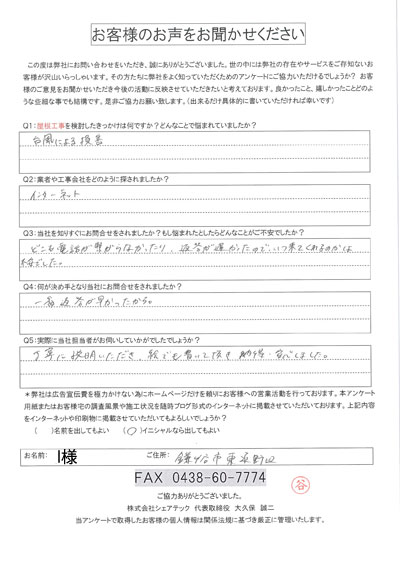 お客様のお声をお聞かせください
この度は弊社にお問い合わせをいただき、誠にありがとうございました。世の中には弊社の存在やサービスをご存知ないお
客様が沢山いらっしゃいます。その方たちに弊社をよく知っていただくためのアンケートにご協力いただけるでしょうか？ お客
様のご意見をお聞かせいただき今後の活動に反映させていただきたいと考えております。良かったこと、嬉しかったことどのよ
うな些細な事でも結構です。是非ご協力お願い致します。（出来るだけ具体的に書いていただければ幸いです）
Q1:屋根工事を検討したきっかけは何ですか？どんなことで悩まれていましたか？
台風による損害
Q2:業者や工事会社をどのように探されましたか？
インターネット
Q3:当社を知りすぐにお問合せをされましたか？もし悩まれたとしたらどんなことがご不安でしたか？
どこも電話が繋がらなかったり、返答が遅かったので、いつ来てくれるのかは
不安でした。
Q4:何が決め手となり当社にお問合せをされましたか？
一番返答が早かったから。
Q5:実際に当社担当者がお伺いしていかがでしたでしょうか？
丁寧に説明いただき、絵でも書いて頂き 納得・安心しました。
＊弊社は広告宣伝費を極力かけない為にホームページだけを頼りにお客様への営業活動を行っております。本アンケート
用紙またはお客様宅の調査風景や施工状況を随時ブログ形式のインターネットに掲載させていただいております。上記内容
をインターネットや印刷物に掲載させていただいてもよろしいでしょうか？
（ ）名前を出してもよい （○）イニシャルなら出してもよい
お名前: I様 ご住所: 鎌ヶ谷市東
FAX 0438-60-7774
谷
ご協力ありがとうございました。
株式会社シェアテック 代表取締役 大久保 誠二
当アンケートで取得したお客様の個人情報は関係法規に基づき厳正に管理いたします。